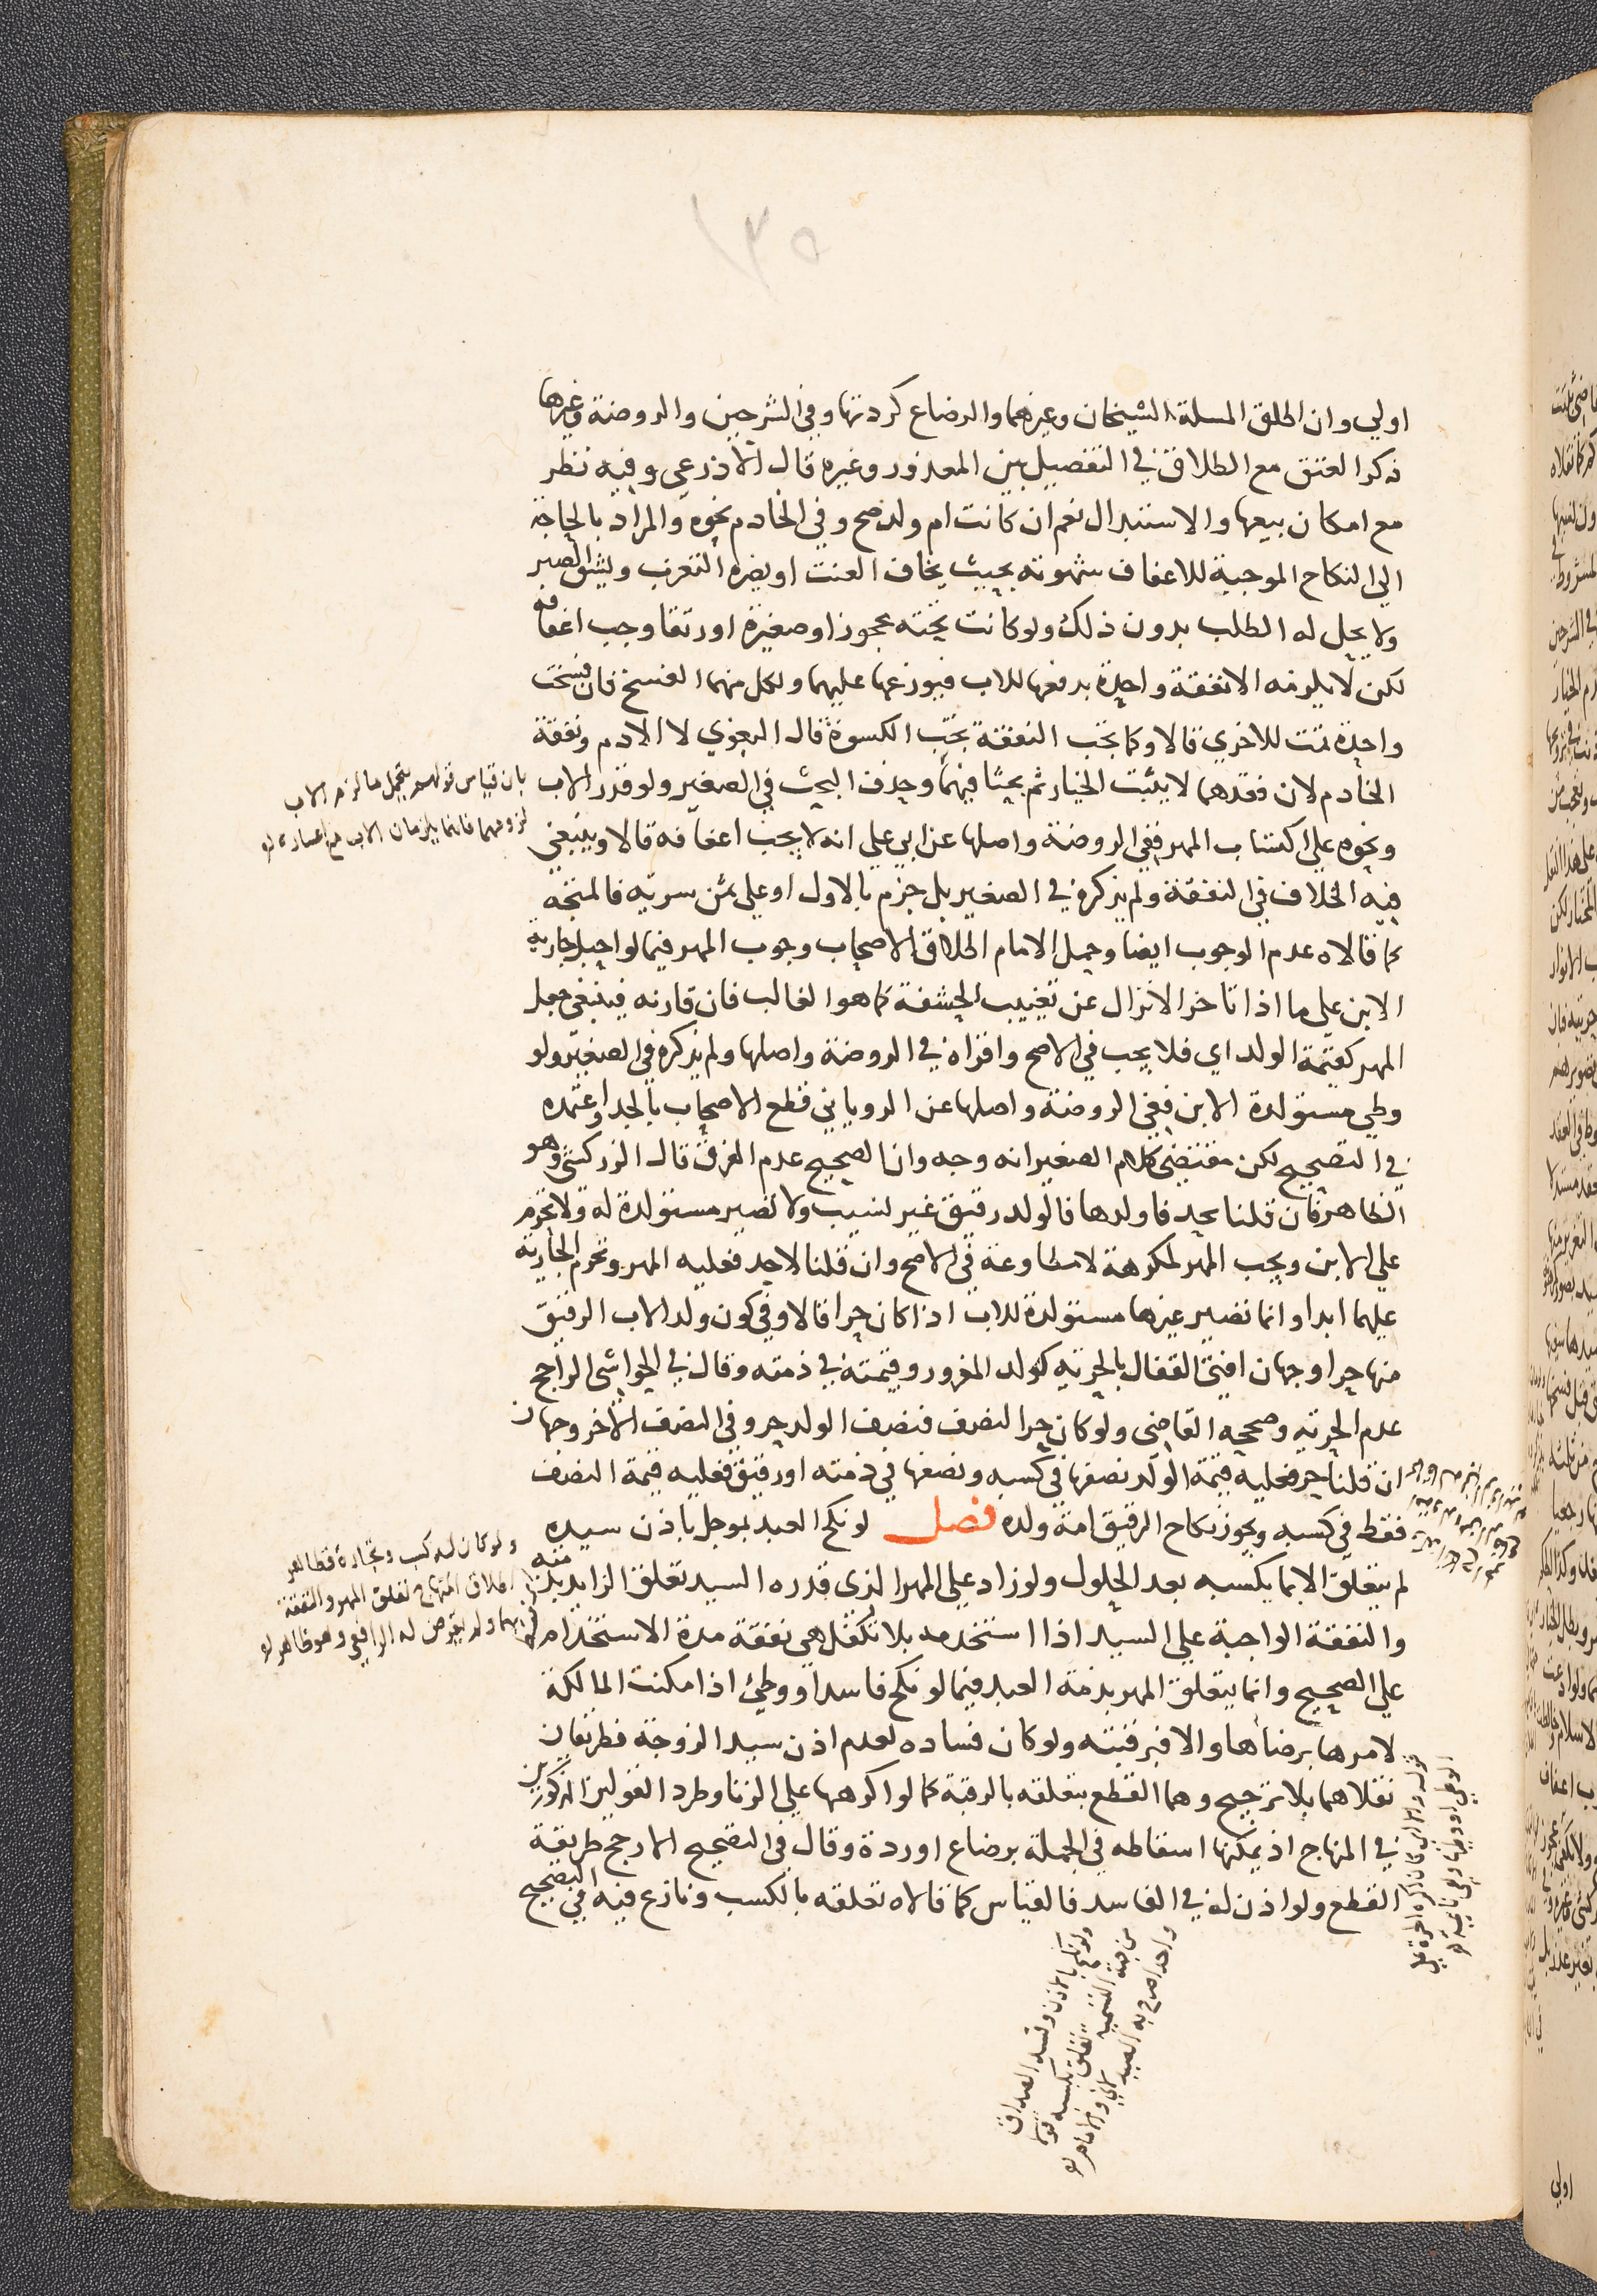 ١٣٥
اولي وان اطلق المسلة الشيخان وغيرهما والرضاع كردتها وفي الشرحين والروضة وغيرها
ذكر العتق مع الطلاق في التفصيل بين المعذور وغيره قال الاذرعي وفيه نظر
مع امكان بيعها والاستبدال نعم ان كانت ام ولد صح وفي الخادم نحوه والمراد بالحاجة
الي النكاح الموجبة للاعفاف شهوته بحيث يخاف العنت او يضره التعزب ويشق الصبر
ولا يحل له الطلب بدون ذلك ولو كانت تحته عجوز او صغيرة او رتقا وجب اعفافه
لكن لا يلزمه الا نفقة واحدة يدفعها للاب فيوزعها عليهما ولكل منهما الفسخ فان فسخت
واحدة تمت للاخري قالا وكما تجب النفقة تجب الكسوة قال البغوي لا الادم ونفقة
الخادم لان فقدهما لا يثبت الخيار ثم بحثا فيهما وحذف البحث في الصغير ولو قدر الاب
بان قياس قولهم يتحمل ما لزم الاب
لزومهما فانهما يلزمان الاب مع اعساره
ونحوه علي اكتساب المهر ففي الروضة واصلها عن ابي علي انه لا يجب اعفافه قالا وينبغي
فيه الخلاف في النفقة ولم يذكره في الصغير بل جزم بالاول او علي ثمن سرية فالمتجه
كما قالاه عدم الوجوب ايضا وحمل الامام اطلاق الاصحاب وجوب المهر فيما لو احبل جارية
الابن علي ما اذا تاخر الانزال عن تغييب الحشفة كما هو الغالب فان قارنه فينبغي جعل
المهر كقيمة الولد اي فلا يجب في الاصح واقراه في الروضة واصلها ولم يذكره في الصغير ولو
وطي مستولدة الابن ففي الروضة واصلها عن الروياني قطع الاصحاب بالحد واعتمده
في التصحيح لكن مقتضي كلام الصغير انه وجه وان الصحيح عدم الفرق قال الزركشي وهو
الظاهر فان قلنا يحد فاولدها فالولد رقيق غير نسيب ولا تصير مستولدة له ولا تحرم
علي الابن ويجب المهر لمكرهة لا مطاوعة في الاصح وان قلنا لا حد فعليه المهر وتحرم الجارية
عليهما ابدا وانما تصير غيرها مستولدة للاب اذا كان حرا قالا وفي كون ولد الاب الرقيق
منها حرا وجهان افتي القفال بالحرية كولد المغرور وقيمته في ذمته وقال في الحواشي الراجح
عدم الحرية وصححه القاضي ولو كان حر النصف فنصف الولد حر وفي النصف الاخر وجهان
ان قلنا حر فعليه قيمة الولد نصفها في كسبه ونصفها في ذمته او رقيق فعليه قيمة النصف
فقط في كسبه ويجوز نكاح الرقيق امة ولده فصل لو نكح العبد بموجل باذن سيده
لم يتعلق الا بما يكسبه بعد الحلول ولو زاد علي المهر الذي قدره السيد تعلق الزايد بذمته
ولو كان له كسب وتجارة فظاهر
اطلاق المنهاج تعلق المهر والنفقة
بهما ولم يتعرض له الرافعي وهو ظاهر
والنفقة الواجبة علي السيد اذا استخدمه بلا تكفل هي نفقة مدة الاستخدام
علي الصحيح وانما يتعلق المهر بذمة العبد فيما لو نكح فاسدا ووطئ اذا مكنت المالكة
لامرها برضاها والا فبرقبته ولو كان فساده لعدم اذن سيد الزوجة فطريقان
نقلاهما بلا ترجيح وهما القطع بتعلقه بالرقبة كما لو اكرهها علي الزنا وطرد القولين المذكورين
في المنهاج اذ يمكنها اسقاطه في الجملة برضاع او ردة وقال في التصحيح الارجح طريقة
القطع ولو اذن له في الفاسد فالقياس كما قالاه تعلقه بالكسب ونازع فيه في التصحيح
ولو نكح بالاذن وفسد الصداق
من جهة التسمية تعلق بكسبه
اولي